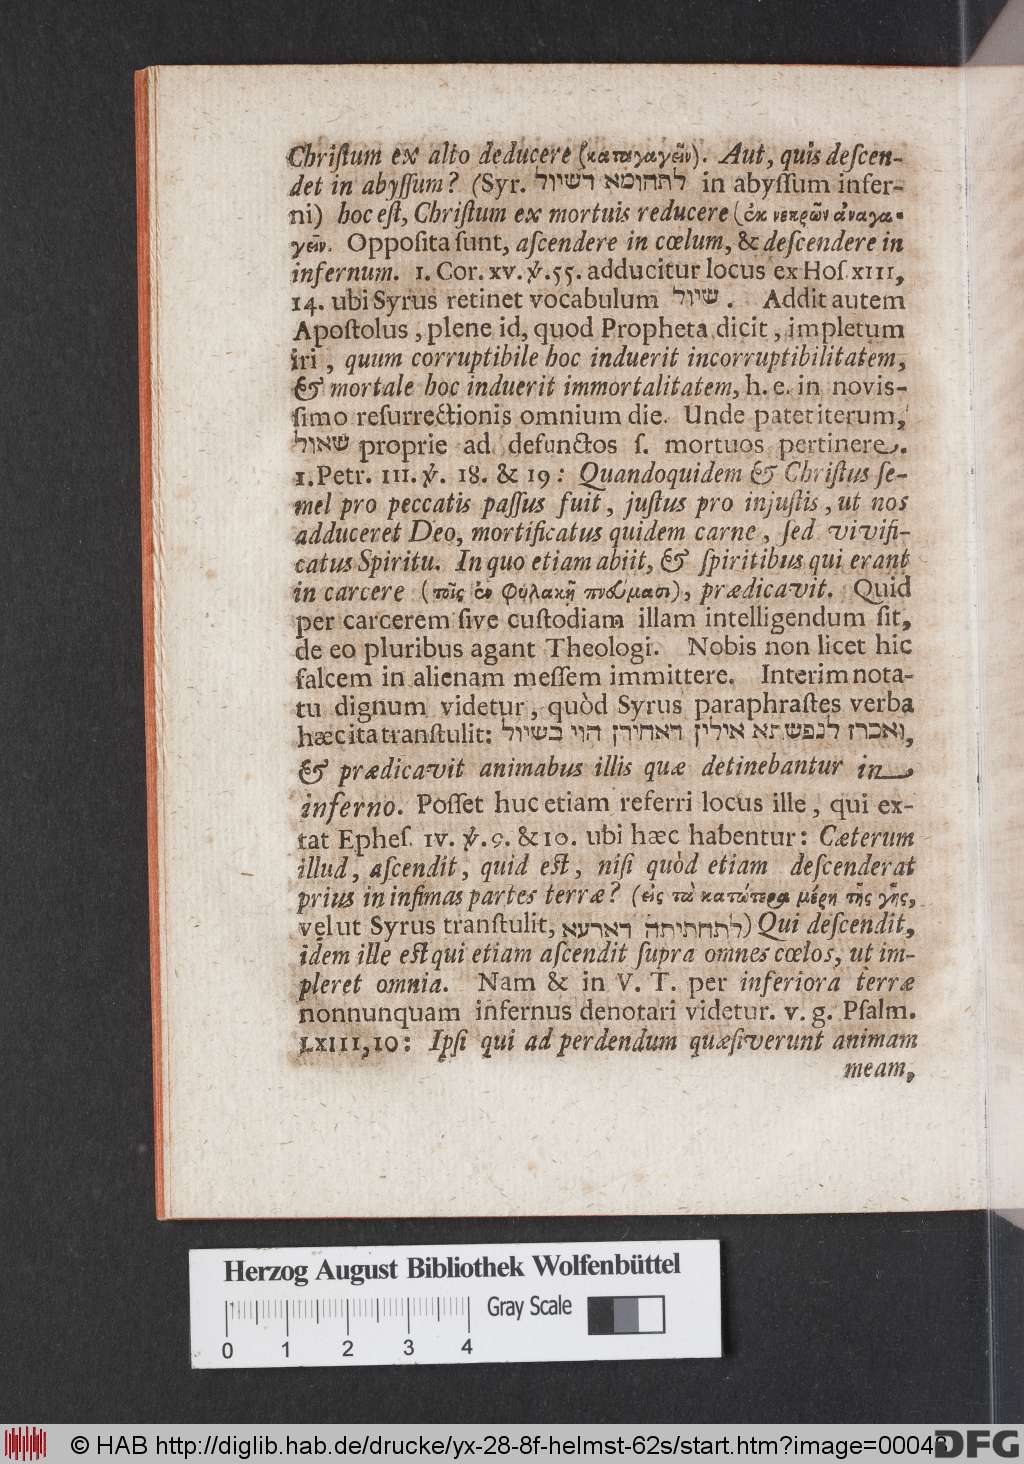 Chriſtum ex alto deducere (καταγαγεῖν). Aut, quis deſcen-
det in abyſſum? (Syr. לתהומא דשיול in abyſſum infer-
ni) hoc eſt, Chriſtum ex mortuis reducere (ἐκ νεκρῶν ἀναγα-
γεῖν. Oppoſita ſunt, aſcendere in cœlum, & deſcendere in
infernum. 1. Cor. xv. ℣. 55. adducitur locus ex Hoſ. XIII,
14. ubi Syrus retinet vocabulum שיול. Addit autem
Apoſtolus, plene id, quod Propheta dicit, impletum
iri, quum corruptibile hoc induerit incorruptibilitatem,
& mortale hoc induerit immortalitatem, h. e. in novis-
ſimo reſurrectionis omnium die. Unde patet iterum,
שאול proprie ad defunctos ſ. mortuos pertinere.
1. Petr. III. ℣. 18. & 19: Quandoquidem & Chriſtus ſe-
mel pro peccatis paſſus fuit, juſtus pro injuſtis, ut nos
adduceret Deo, mortificatus quidem carne, ſed vivifi-
catus Spiritu. In quo etiam abiit, & ſpiritibus qui erant
in carcere (τοῖς ἐν φυλακῇ πνεύμασι), prædicavit. Quid
per carcerem ſive cuſtodiam illam intelligendum ſit,
de eo pluribus agant Theologi. Nobis non licet hic
falcem in alienam meſſem immittere. Interim nota-
tu dignum videtur, quòd Syrus paraphraſtes verba
hæc ita tranſtulit: ואכרז לנפשתא אילין דאחירן הוי בשיול,
& prædicavit animabus illis quæ detinebantur in
inferno. Poſſet huc etiam referri locus ille, qui ex-
tat Epheſ. IV. ℣. 9. & 10. ubi hæc habentur: Cæterum
illud, aſcendit, quid eſt, niſi quòd etiam deſcenderat
prius in infimas partes terræ? (εἰς τὰ κατώτερα μέρη τῆς γῆς,
velut Syrus tranſtulit, לתחתיתה דארעא) Qui deſcendit,
idem ille eſt qui etiam aſcendit ſupra omnes cœlos, ut im-
pleret omnia. Nam & in V. T. per inferiora terræ
nonnunquam infernus denotari videtur. v. g. Pſalm.
LXIII, 10: Ipſi qui ad perdendum quæſiverunt animam
meam,
Herzog August Bibliothek Wolfenbüttel
Gray Scale
0 1 2 3 4
© HAB http://diglib.hab.de/drucke/yx-28-8f-helmst-62s/start.htm?image=00043
DFG